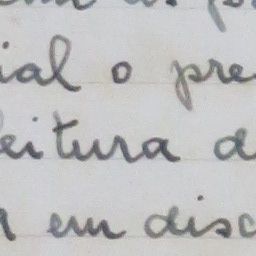 ial o pre
eitura d
em disc